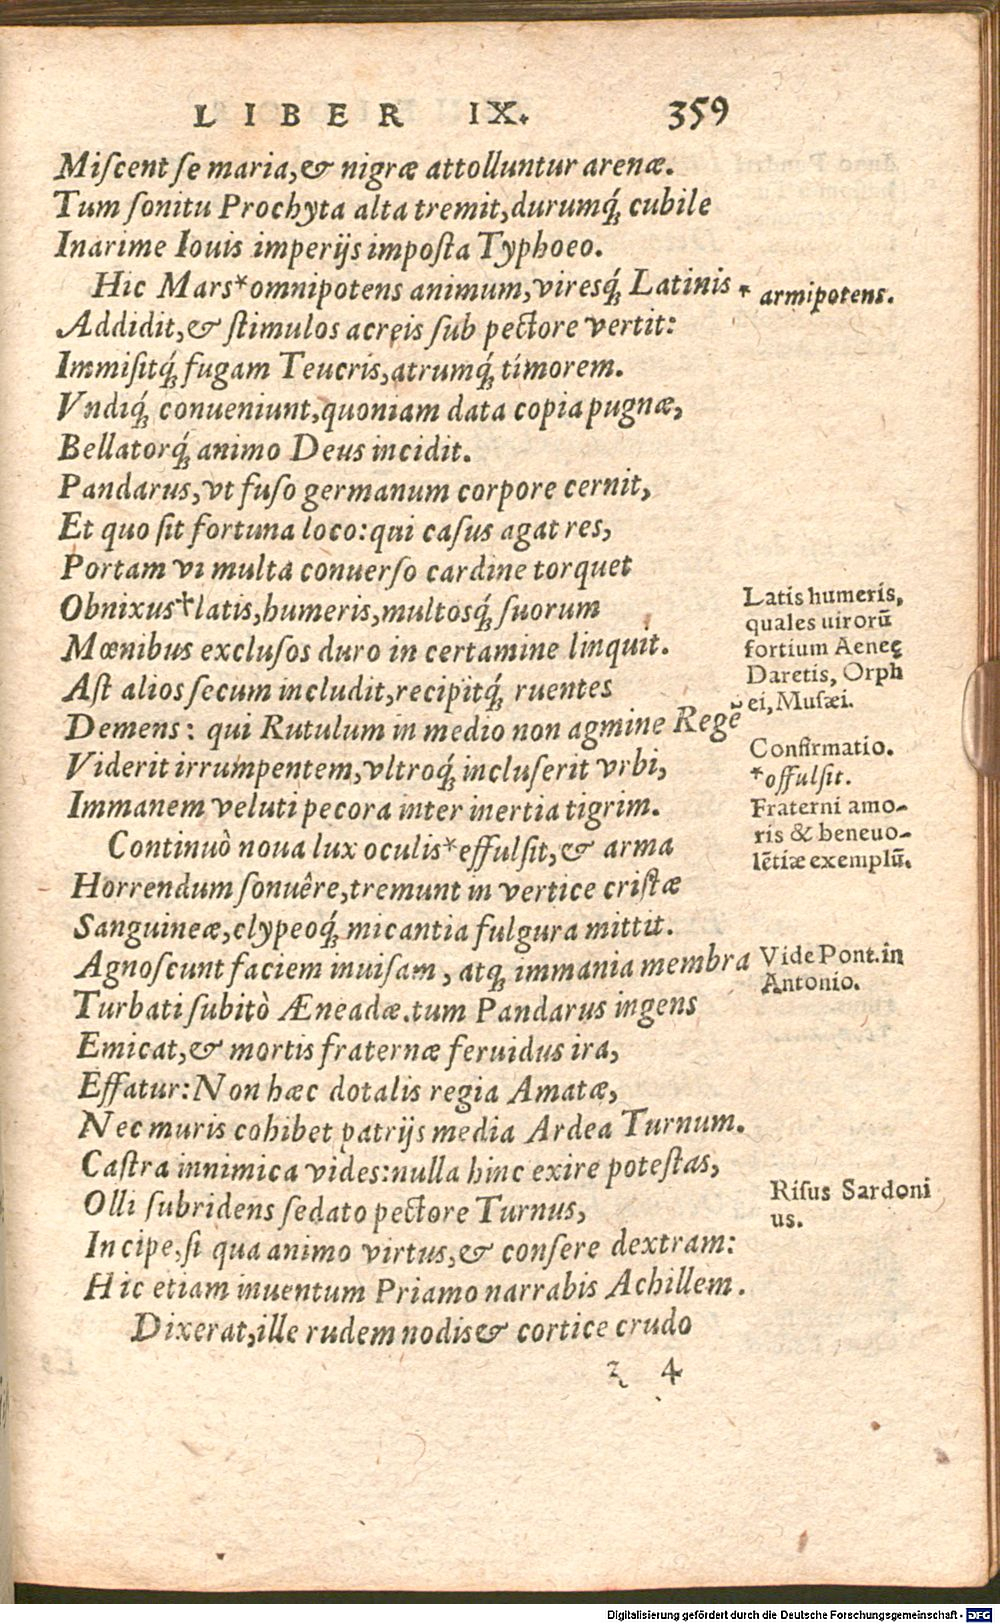 LIBER IX. 359
Miſcent ſe maria,& nigræ attolluntur arenæ.
Tum ſonitu Prochyta alta tremit,durumq́; cubile
Inarime Iouis imperijs impoſta Typhoeo.
Hic Mars*omnipotens animum,viresq́; Latinis
* armipotens.
Addidit,& ſtimulos acreis ſub pectore vertit:
Immiſitq́; fugam Teucris,atrumq́; timorem.
Vndiq́; conueniunt,quoniam data copia pugnæ,
Bellatorq́; animo Deus incidit.
Pandarus,vt fuſo germanum corpore cernit,
Et quo ſit fortuna loco:qui caſus agat res,
Portam vi multa conuerſo cardine torquet
Obnixus†latis,humeris,multosq́; ſuorum
Mœnibus excluſos duro in certamine linquit.
Aſt alios ſecum includit,recipitq́; ruentes
Demens: qui Rutulum in medio non agmine Regē
Viderit irrumpentem,vltroq́; incluſerit vrbi,
Immanem veluti pecora inter inertia tigrim.
Latis humeris,
quales uirorū
fortium Aeneę
Daretis, Orph
ei, Muſæi.
Confirmatio.
*offulſit.
Fraterni amo-
ris & beneuo-
lētiæ exemplū.
Continuò noua lux oculis*effulſit,& arma
Horrendum ſonuêre,tremunt in vertice criſtæ
Sanguineæ,clypeoq́; micantia fulgura mittit.
Agnoſcunt faciem inuiſam, atq; immania membra
Turbati ſubitò Æneadæ.tum Pandarus ingens
Vide Pont.in
Antonio.
Emicat,& mortis fraternæ feruidus ira,
Effatur:Non hæc dotalis regia Amatæ,
Nec muris cohibet patrijs media Ardea Turnum.
Caſtra innimica vides:nulla hinc exire poteſtas,
Olli ſubridens ſedato pectore Turnus,
Riſus Sardoni
us.
Incipe,ſi qua animo virtus,& conſere dextram:
Hic etiam inuentum Priamo narrabis Achillem.
Dixerat,ille rudem nodis& cortice crudo
z 4
Digitalisierung gefördert durch die Deutsche Forschungsgemeinschaft - DFG